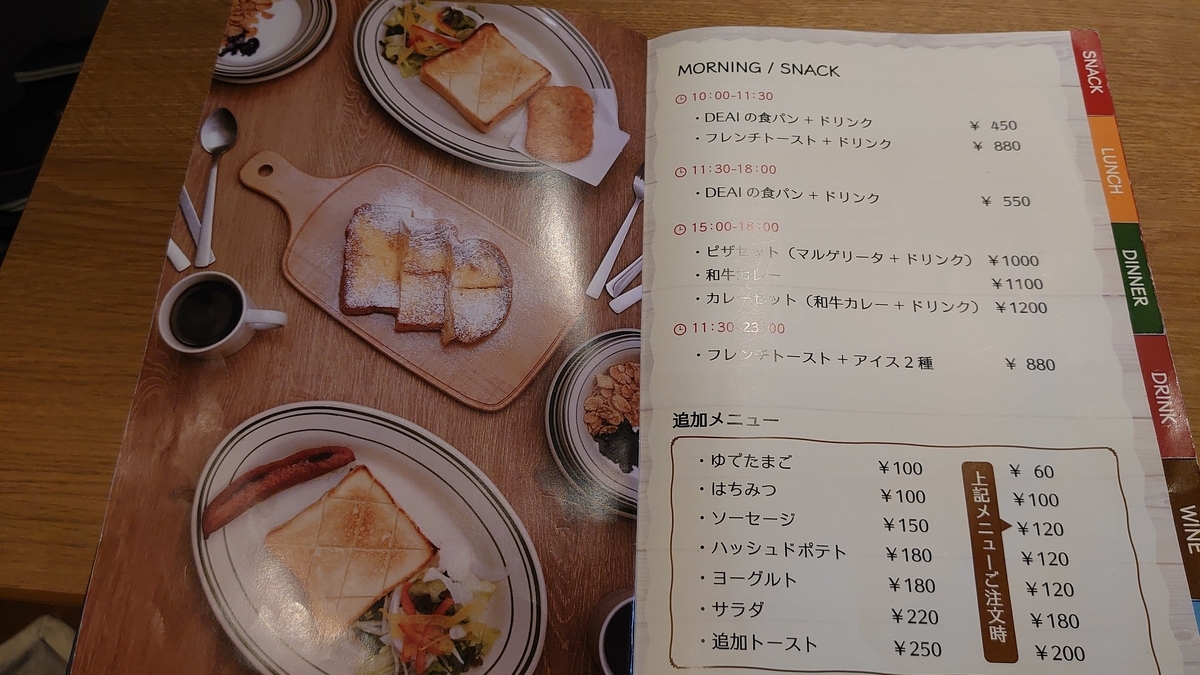 MORNING / SNACK
10:00-11:30
・DEAI の食パン + ドリンク ¥ 450
・フレンチトースト + ドリンク ¥ 880
11:30-18:00
・DEAI の食パン + ドリンク ¥ 550
15:00-18:00
・ピザセット（マルゲリータ + ドリンク） ¥1000
・和牛カレー ¥1100
・カレーセット（和牛カレー + ドリンク） ¥1200
11:30-23:00
・フレンチトースト + アイス 2 種 ¥ 880
追加メニュー
・ゆでたまご ¥100 ¥ 60
・はちみつ ¥100 ¥100
・ソーセージ ¥150 ¥120
・ハッシュドポテト ¥180 ¥120
・ヨーグルト ¥180 ¥120
・サラダ ¥220 ¥180
・追加トースト ¥250 ¥200
上記メニューご注文時
SNACK
LUNCH
DINNER
DRINK
WINE